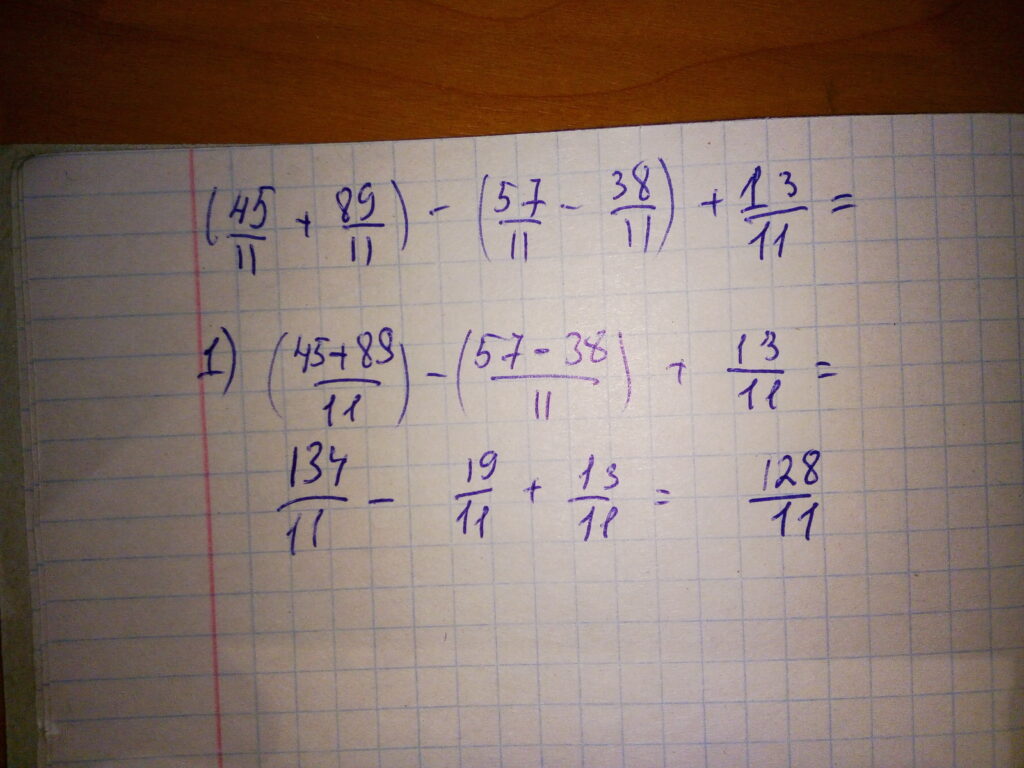 (45/11 + 89/11) - (57/11 - 38/11) + 13/11 =
1) (45+89/11) - (57-38/11) + 13/11 =
134/11 - 19/11 + 13/11 = 128/11